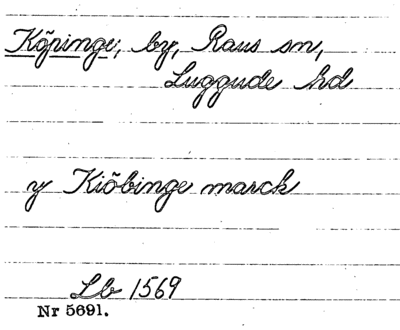 Köpinge, by, Raus sn,
Luggude hd
y Kiöbinge marck
Lb 1569
Nr 5691.